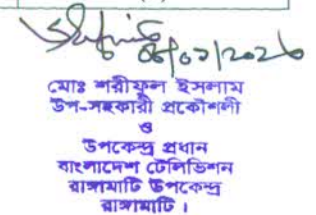 মোঃ শরীফুল ইসলাম
উপ-সহকারী প্রকৌশলী
ও
উপকেন্দ্র প্রধান
বাংলাদেশ টেলিভিশন
রাঙ্গামাটি উপকেন্দ্র
রাঙ্গামাটি ।